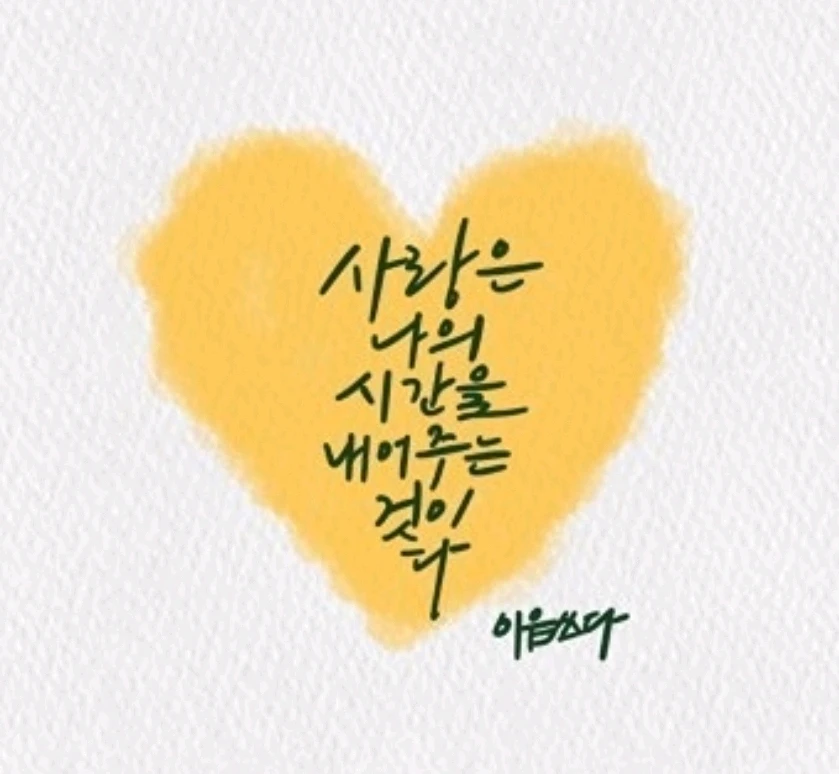 사랑은
나의
시간을
내어주는
것이
다
이음쓰다